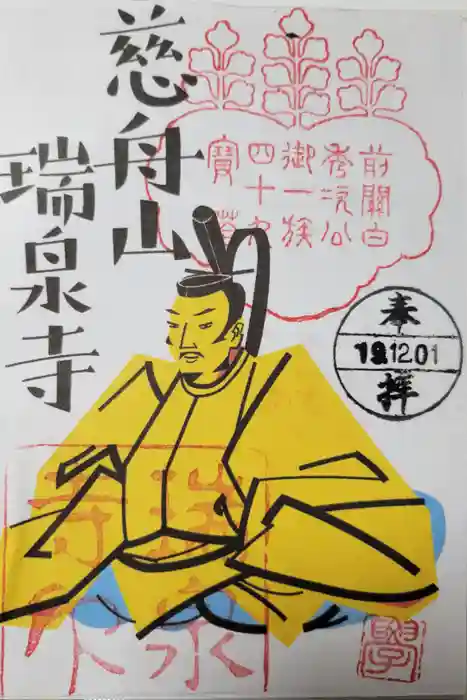 慈舟山
瑞泉寺
前關白
秀次公
御一族
四十九
寳塔
奉拝
19.12.01
瑞泉
寺印